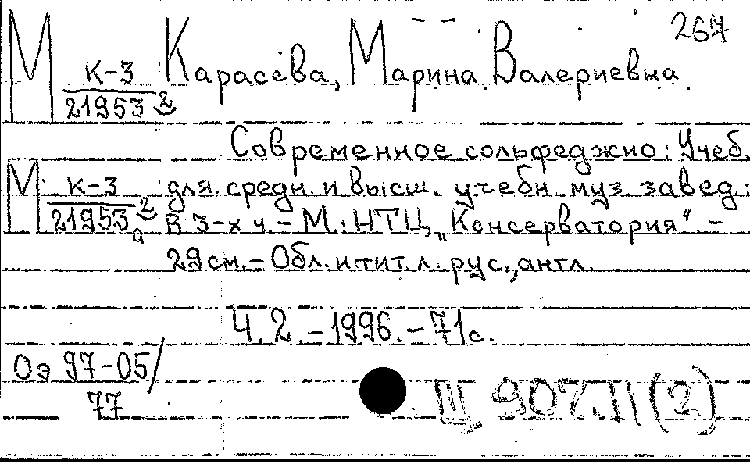 267
М К-3/21953 2 Карасёва, Марина Валериевна.
Современное сольфеджио: Учеб.
М К-3/21953 2 для средн. и высш. учебн. муз. завед.:
В 3-х ч. - М.: НТЦ „Консерватория“. -
29см. - Обл. и тит. л. рус., англ.
Ч. 2. - 1996. - 71с.
Оэ 97-05/
77
Ш 907.II (2)